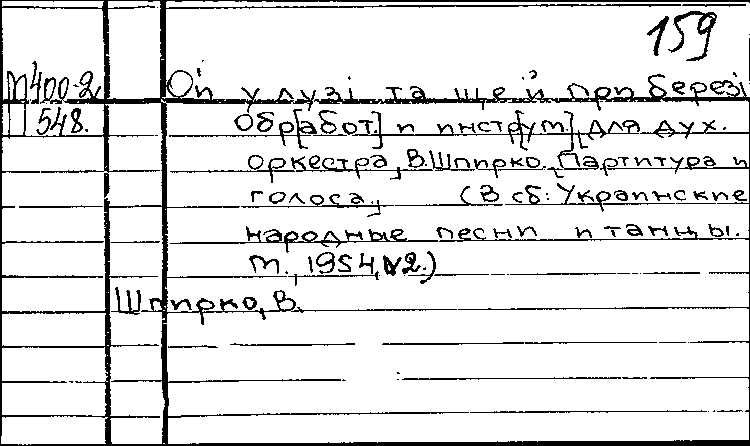 159
М400-2 Ой у лузі та ще й при березі
П 548. Обр[абот] и инстр[ум], для дух.
оркестра, В. Шпирко, Партитура и
голоса, (В сб: Украинские
народные песни и танцы.
М., 1954, №2.)
Шпирко, В.